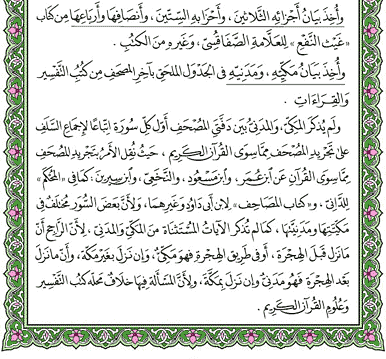 وَأُخِذَ بَيَانُ أَجْزَائِهِ الثَّلَاثِينَ، وَأَحْزَابِهِ السِّتِّينَ، وَأَنْصَافِهَا وَأَرْبَاعِهَا مِن كِتَابِ
«غَيْثِ النَّفْعِ» لِلْعَلَّامَةِ الصَّفَاقُسِيِّ، وَغَيْرِهِ مِنَ الكُتُبِ.
وَأُخِذَ بَيَانُ مَكِّيِّهِ، وَمَدَنِيِّهِ فِي الجَدْوَلِ المُلْحَقِ بِآخِرِ المُصْحَفِ مِن كُتُبِ التَّفْسِيرِ
وَالقِرَاءَاتِ.
وَلَم يُذْكَرِ المَكِّيُّ، وَالمَدَنِيُّ بَيْنَ دَفَّتَيِ المُصْحَفِ أَوَّلَ كُلِّ سُورَةٍ اتِّبَاعًا لِإِجْمَاعِ السَّلَفِ
عَلَى تَجْرِيدِ المُصْحَفِ مِمَّا سِوَى القُرْآنِ الكَرِيمِ، حَيْثُ نُقِلَ الأَمْرُ بِتَجْرِيدِ المُصْحَفِ
مِمَّا سِوَى القُرْآنِ عَنِ ابْنِ عُمَرَ، وَابْنِ مَسْعُودٍ، وَالنَّخَعِيِّ، وَابْنِ سِيرِينَ: كَمَا فِي «المُحْكَمِ»
لِلدَّانِيِّ، وَ«كِتَابِ المَصَاحِفِ» لِابْنِ أَبِي دَاوُدَ وَغَيْرِهِمَا، وَلِأَنَّ بَعْضَ السُّوَرِ مُخْتَلَفٌ فِي
مَكِّيَّتِهَا وَمَدَنِيَّتِهَا، كَمَا لَم تُذْكَرِ الآيَاتُ المُسْتَثْنَاةُ مِنَ المَكِّيِّ وَالمَدَنِيِّ، لِأَنَّ الرَّاجِحَ أَنَّ
مَا نَزَلَ قَبْلَ الهِجْرَةِ، أَوْ فِي طَرِيقِ الهِجْرَةِ فَهُوَ مَكِّيٌّ وَإِن نَزَلَ بِغَيْرِ مَكَّةَ، وَأَنَّ مَا نَزَلَ
بَعْدَ الهِجْرَةِ فَهُوَ مَدَنِيٌّ وَإِن نَزَلَ بِمَكَّةَ، وَلِأَنَّ المَسْأَلَةَ فِيهَا خِلَافٌ مَحَلُّهُ كُتُبُ التَّفْسِيرِ
وَعُلُومِ القُرْآنِ الكَرِيمِ.